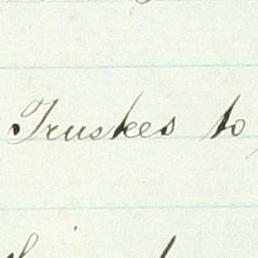 Trustees to